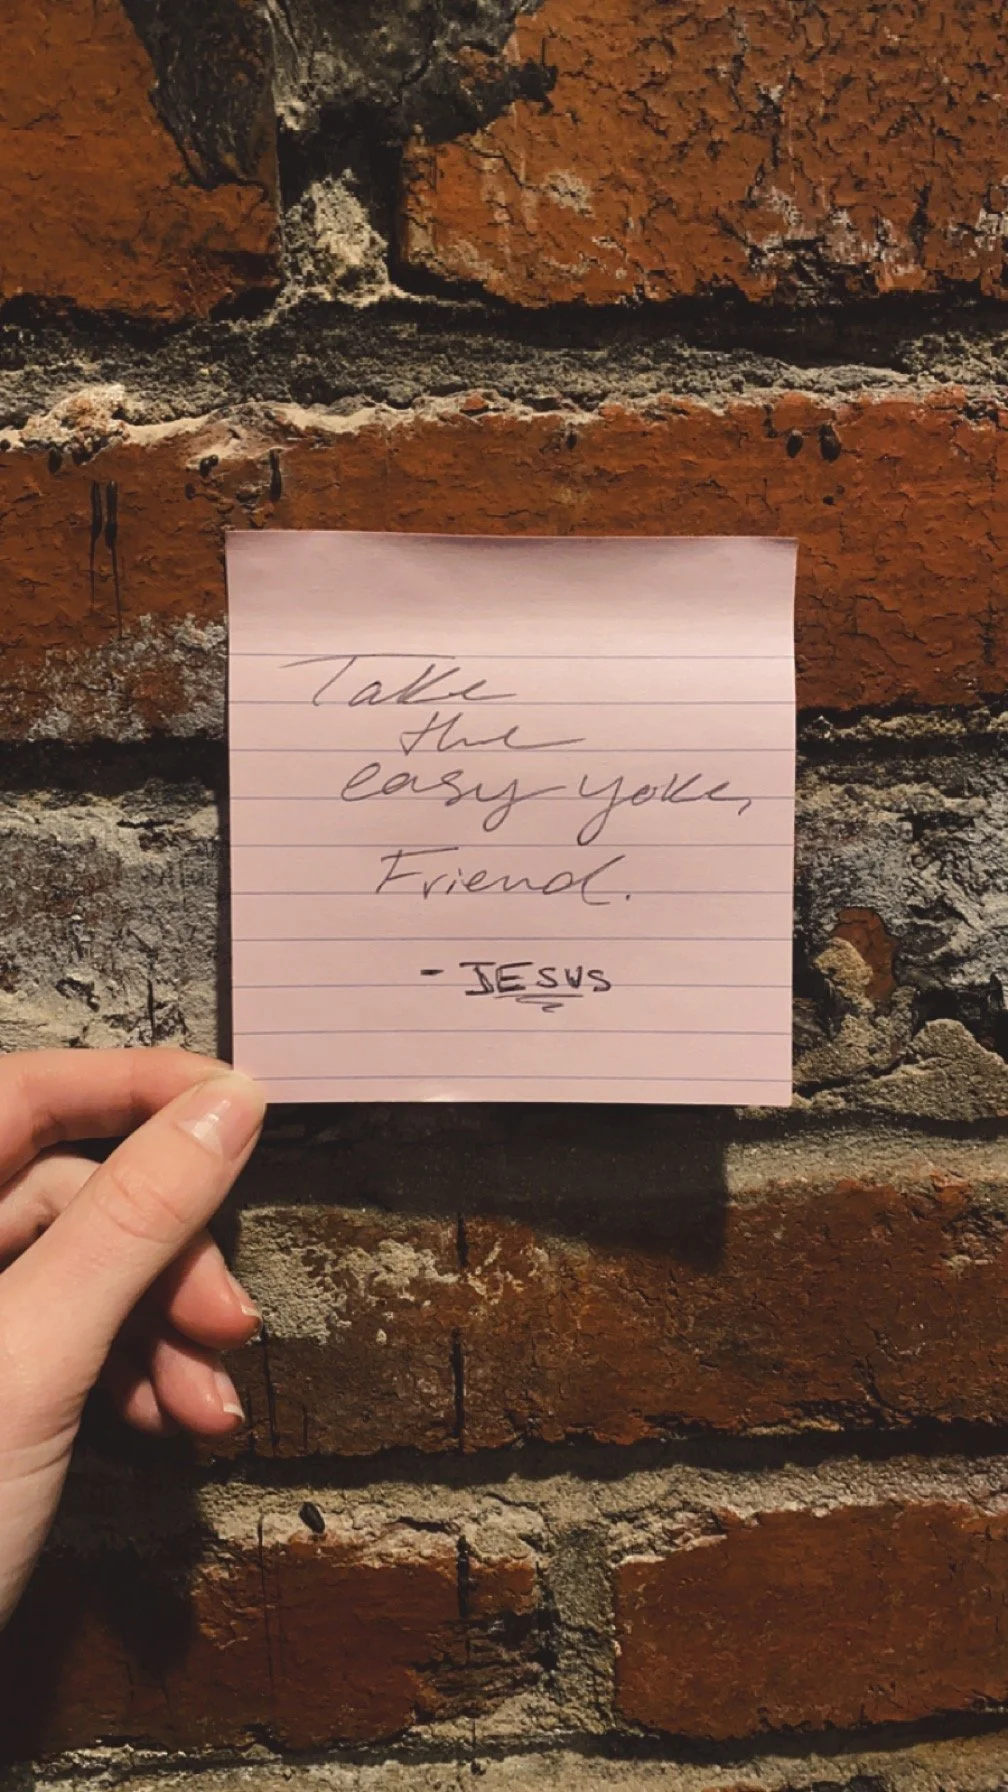 Take
the
easy yoke,
Friend.
- JESUS